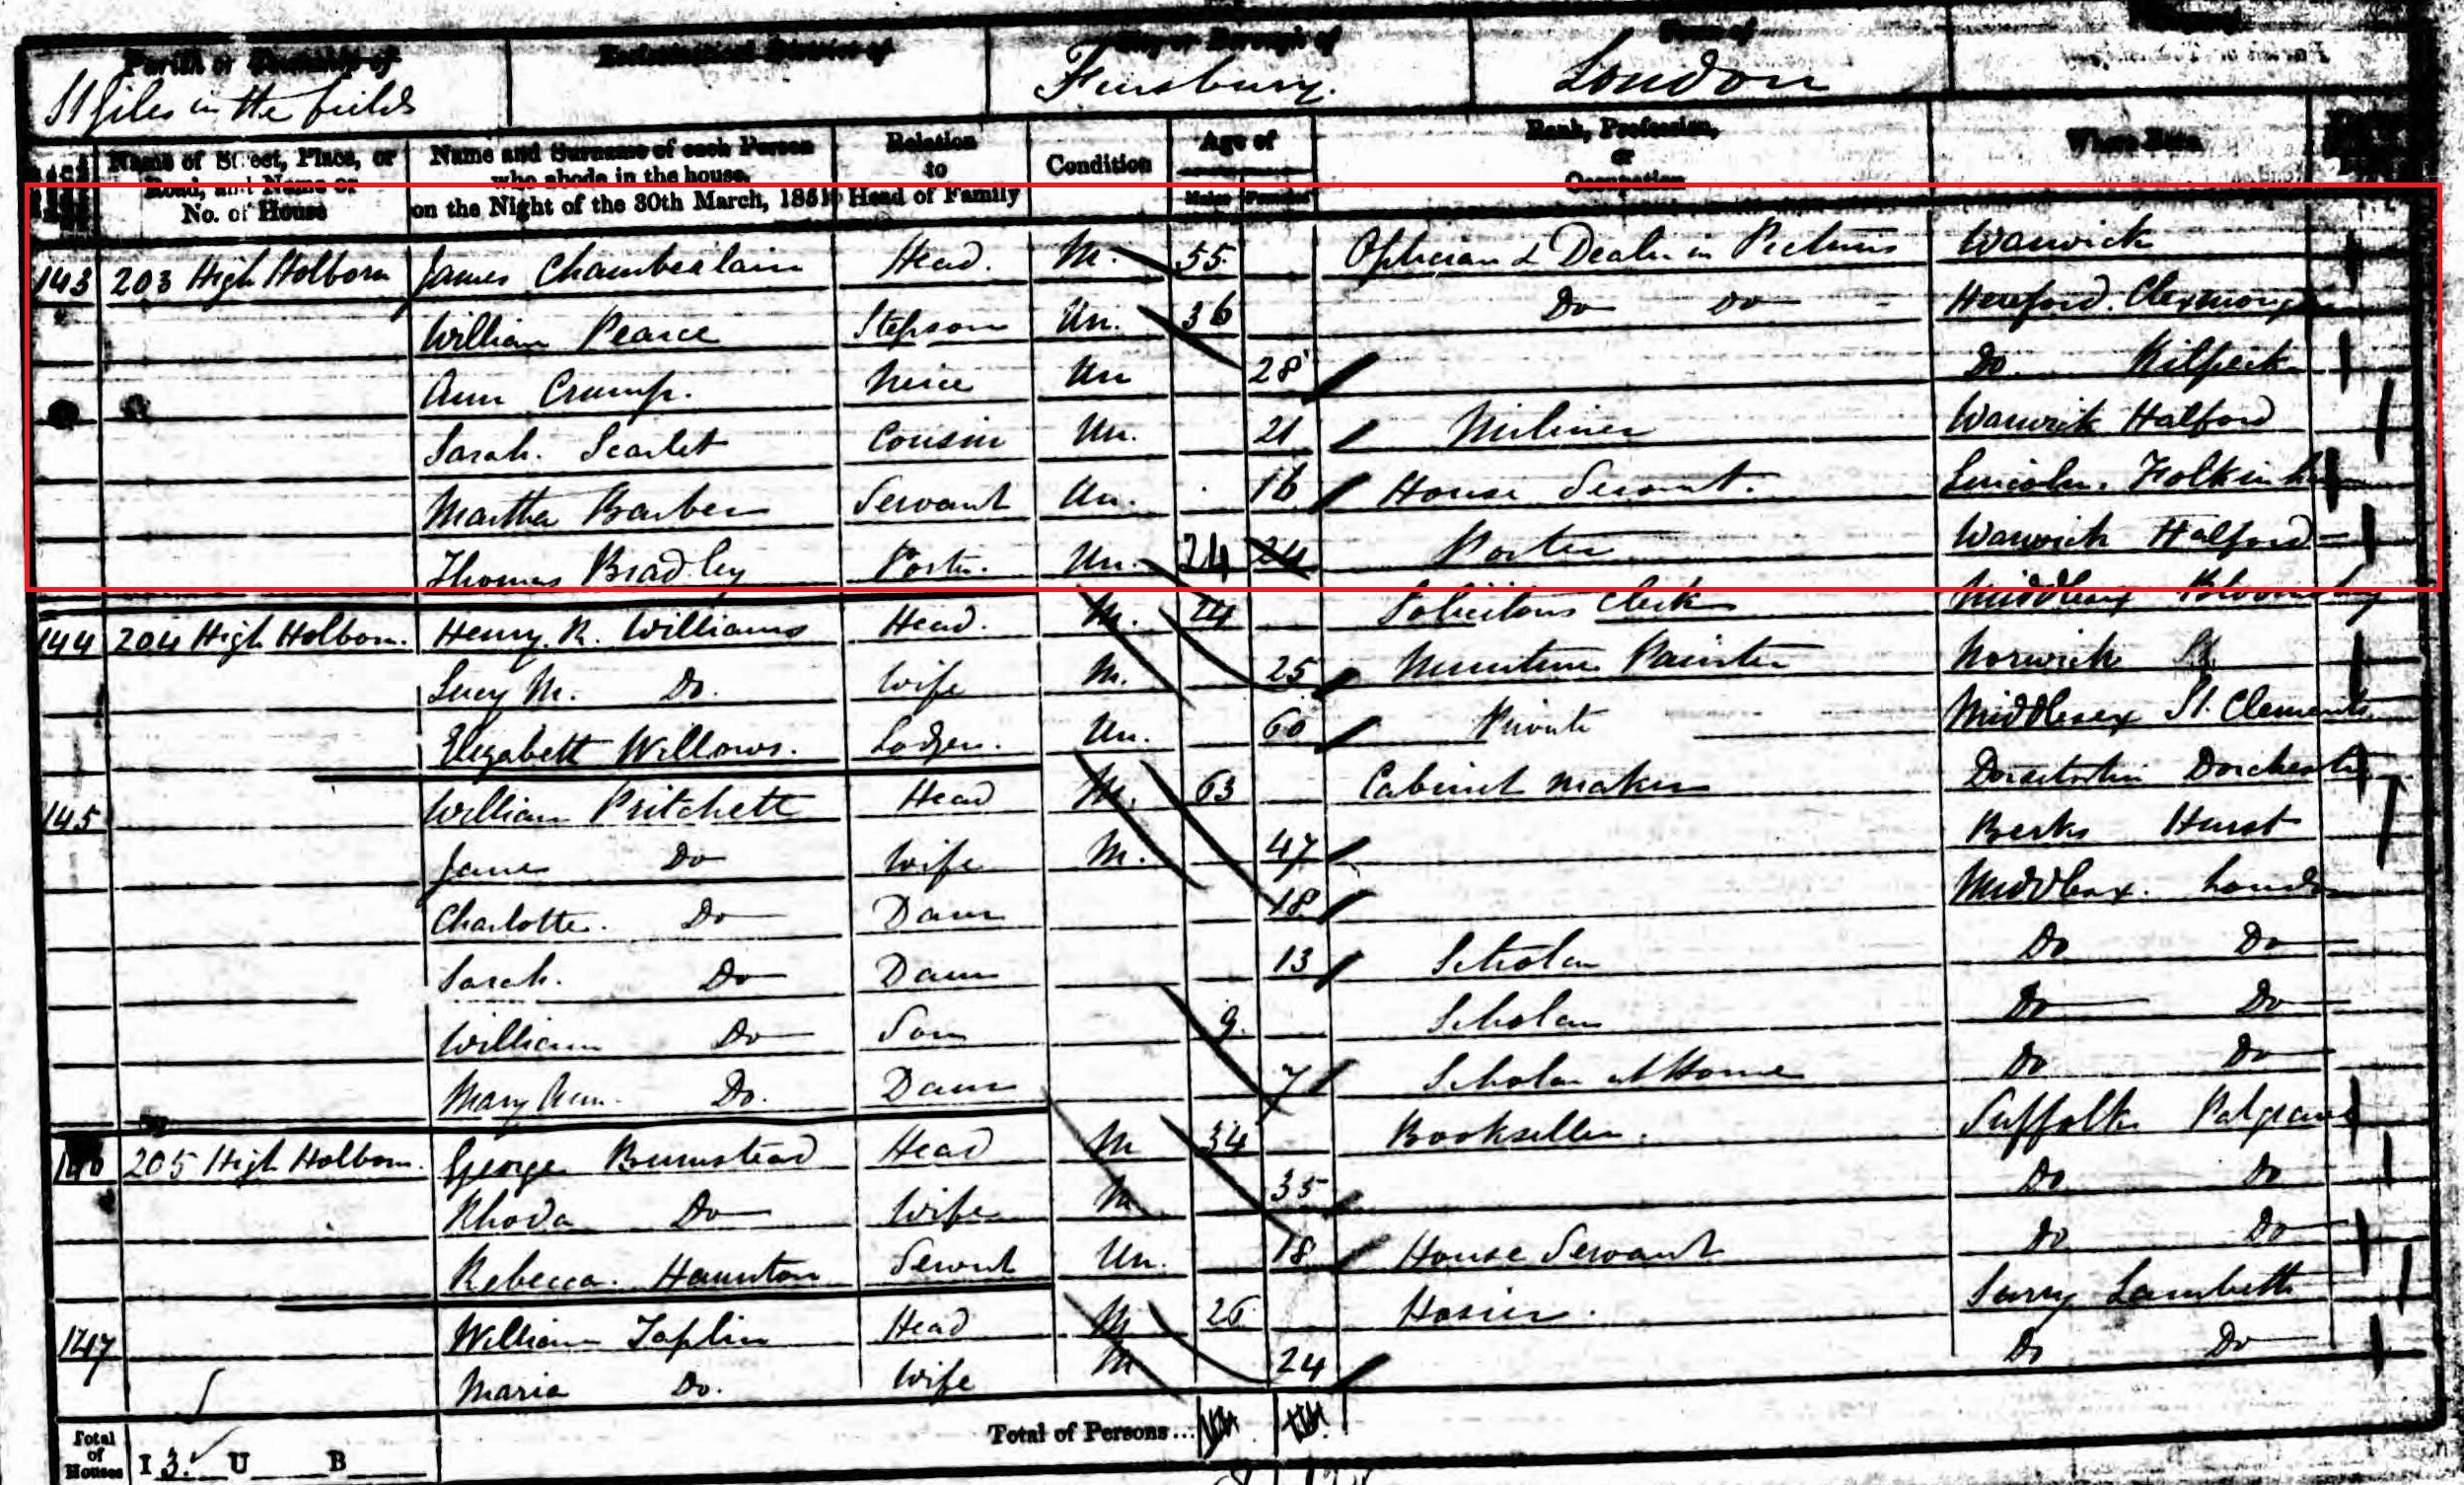 Parish or Township of Ecclesiastical District of City or Borough of Town of
St Giles in the fields Finsbury. London
Name of Street, Place, or Road, and Name or No. of House Name and Surname of each Person who abode in the house, on the Night of the 30th March, 1851 Relation to Head of Family Condition Age of Males Females Rank, Profession, or Occupation Where Born
143 203 High Holborn James Chamberlain Head. M. 55 Optician & Dealer in Pictures Warwick
William Pearce Stepson Un. 36 Do Do Hereford.
Ann Crump. Neice Un 28 Do. Kilpeck
Sarah. Scarlet Cousin Un. 21 Miliner Warwick Halford
Martha Barber Servant Un. 16 House Servant. Lincoln.
Thomas Bradley Porter. Un. 24 24 Porter Warwick Halford
144 204 High Holborn. Henry. R. Williams Head. M. 24 Solicitors Clerk Middlesex
Lucy M. Do. Wife M. 25 Painter Norwich
Elizabeth Willows. Lodger. Un. 60 Private Middlesex St. Clements
145 William Pritchett Head M. 63 Cabinet maker Dorchester
Jane Do Wife M. 47 Berks Hurst
Charlotte. Do Daur 18 Middlesex. London
Sarah. Do Daur 13 Scholar Do Do
William Do Son 9. Scholar Do Do
Mary Ann. Do. Daur 7 Scholar at Home Do Do
146 205 High Holborn. George Bumstead Head M 34 Bookseller. Suffolk Palgrave
Rhoda Do Wife M 35 Do Do
Rebecca. Haunton Servnt Un. 18 House Servant Do Do
147 William Taplin Head M 26 Hosier. Surry Lambeth
Maria Do. Wife M 24 Do Do
Total of Houses I 3. U B Total of Persons...